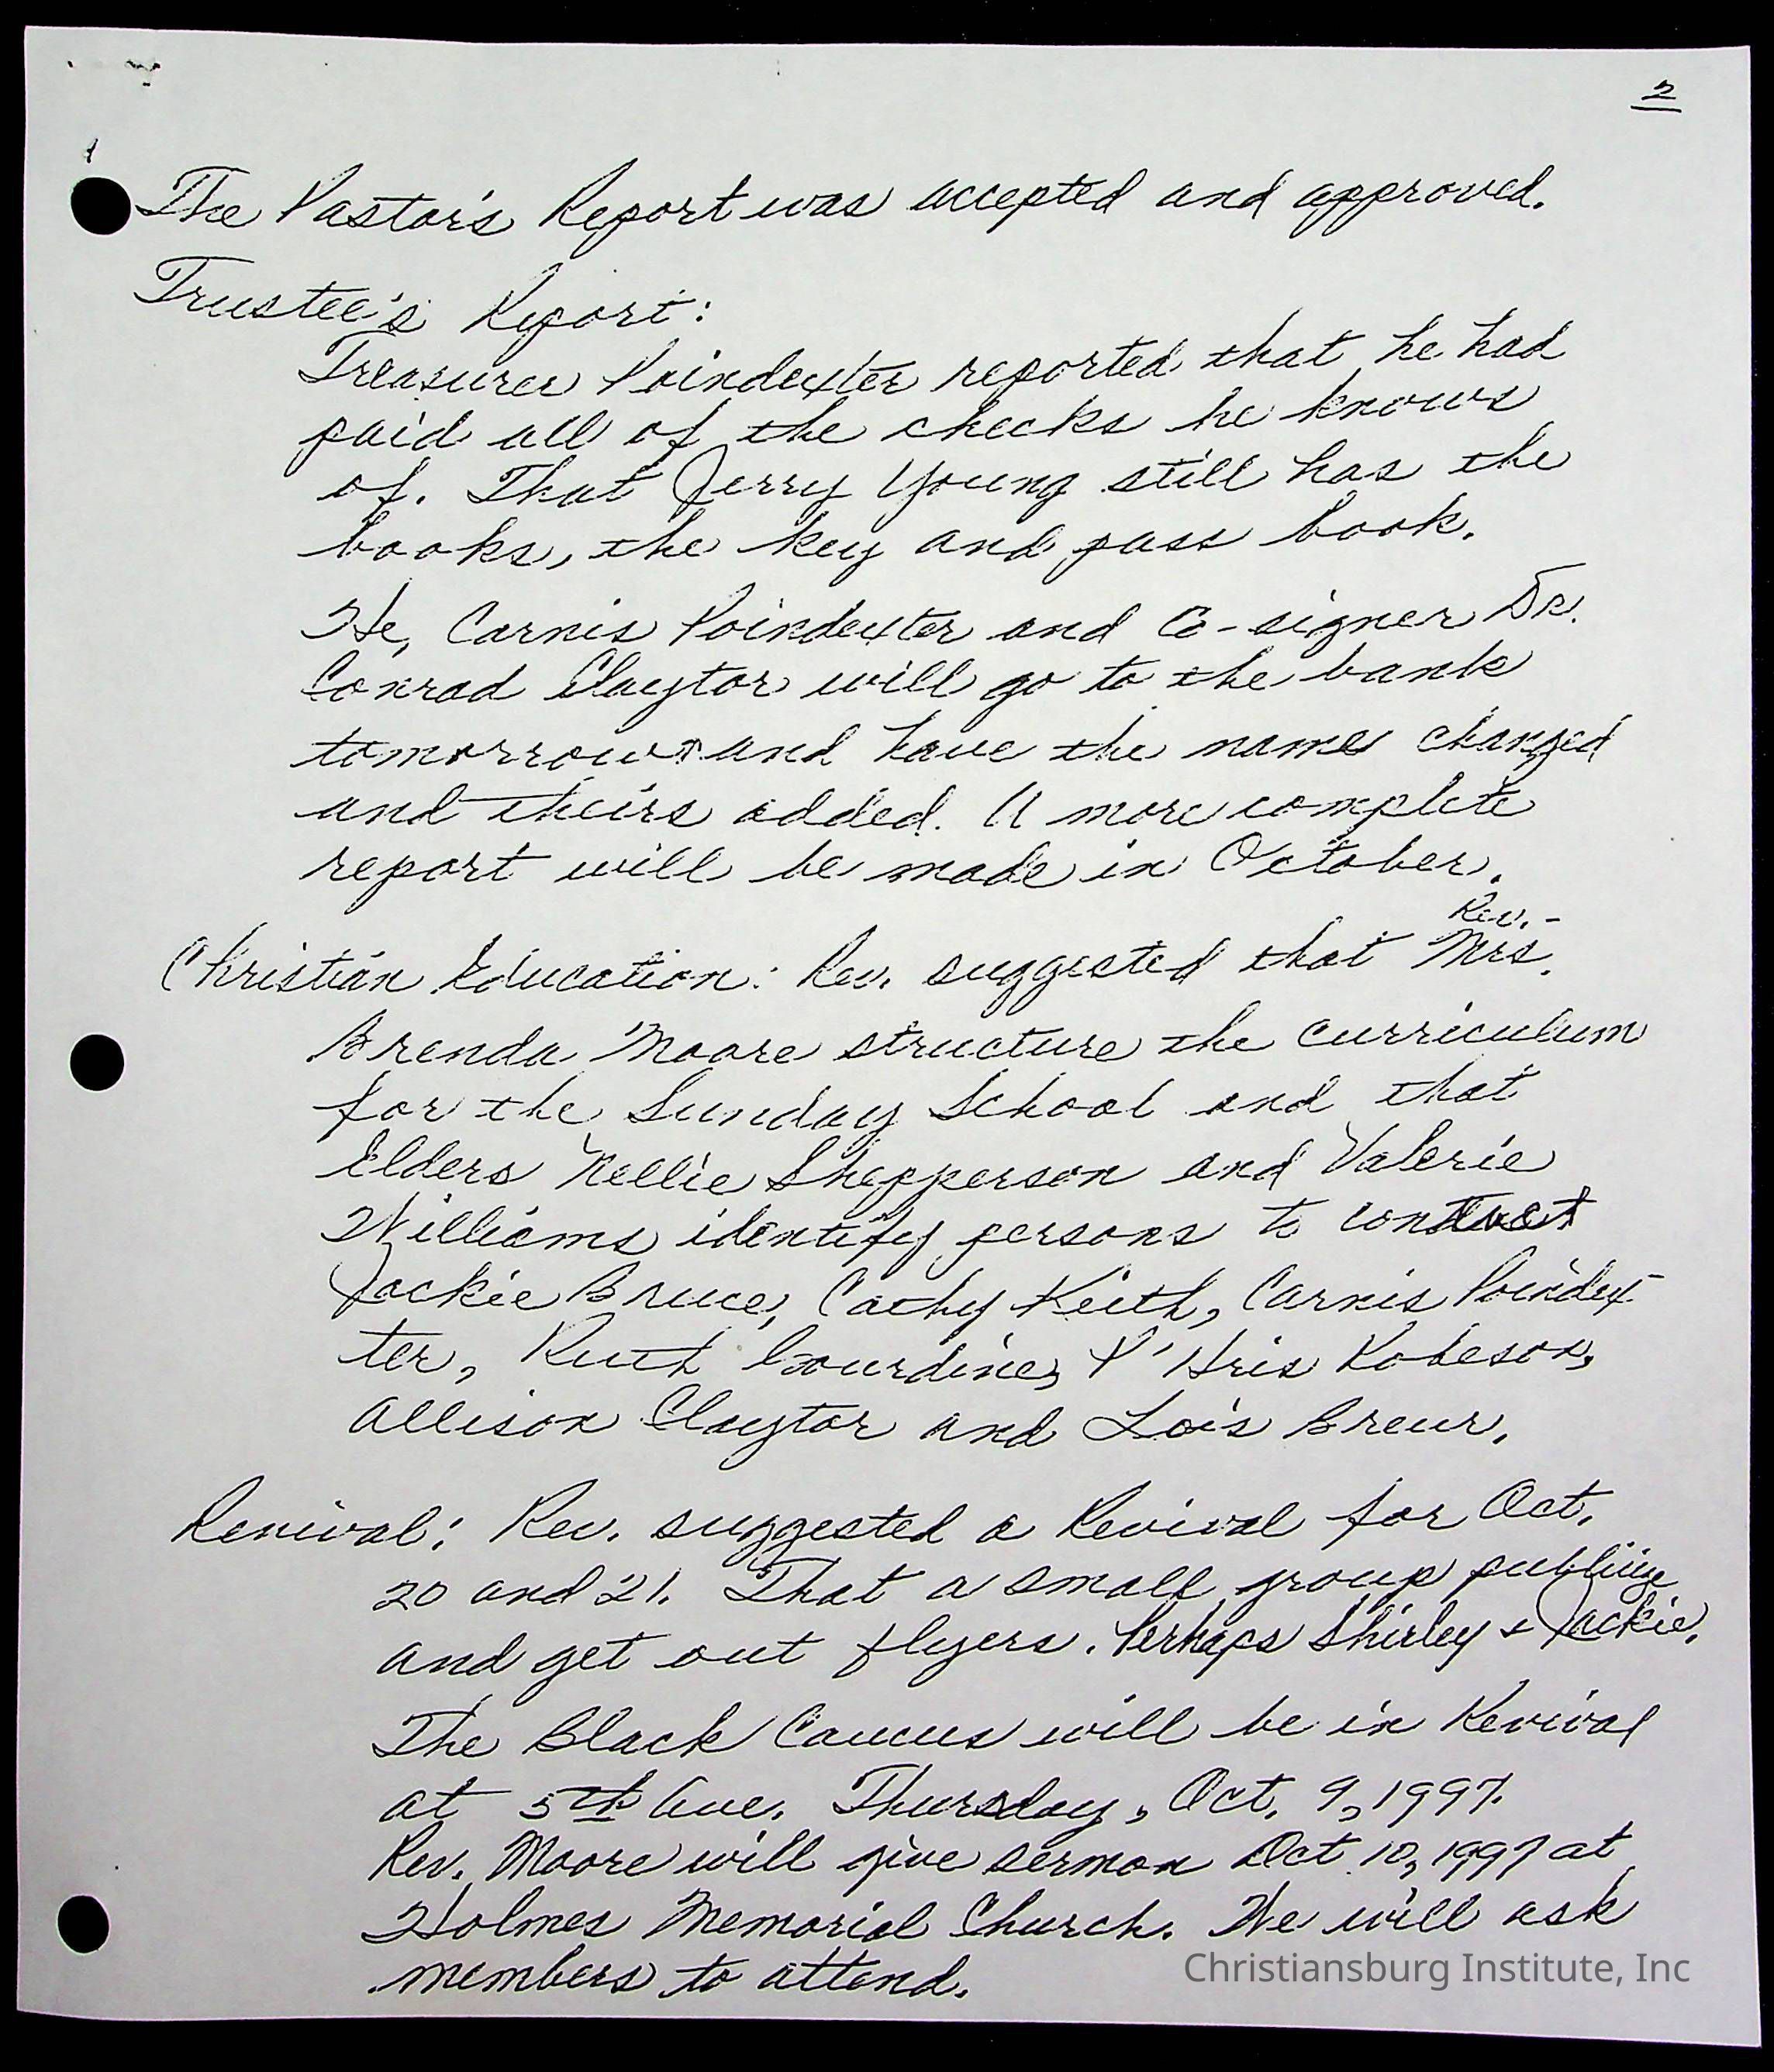 2
The Pastor's Report was accepted and approved.
Trustee's Report:
Treasurer Poindexter reported that he had
paid all of the checks he knows
of. That Jerry Young still has the
books, the key and pass book.
He, Carnis Poindexter and Co-signer Dr.
Conrad Claytor will go to the bank
tomorrow and have the names changed
and theirs added. A more complete
report will be made in October.
Rev. -
Christian Education: Rev. suggested that Mrs.
Brenda Moore structure the curriculum
for the Sunday School and that
Elders Nellie Shepperson and Valerie
Williams identify persons to contact
Jackie Bruce, Cathy Keith, Carnis Poindex-
ter, Ruth Gourdine, Robeson,
Allison Claytor and Lois Breur.
Revival: Rev. suggested a Revival for Oct.
20 and 21. That a small group
and get out flyers. Perhaps Shirley & Jackie.
The Black Caucus will be in Revival
at 5th Ave. Thursday, Oct. 9, 1997.
Rev. Moore will give sermon Oct 10, 1997 at
Holmes Memorial Church. We will ask
members to attend.
Christiansburg Institute, Inc